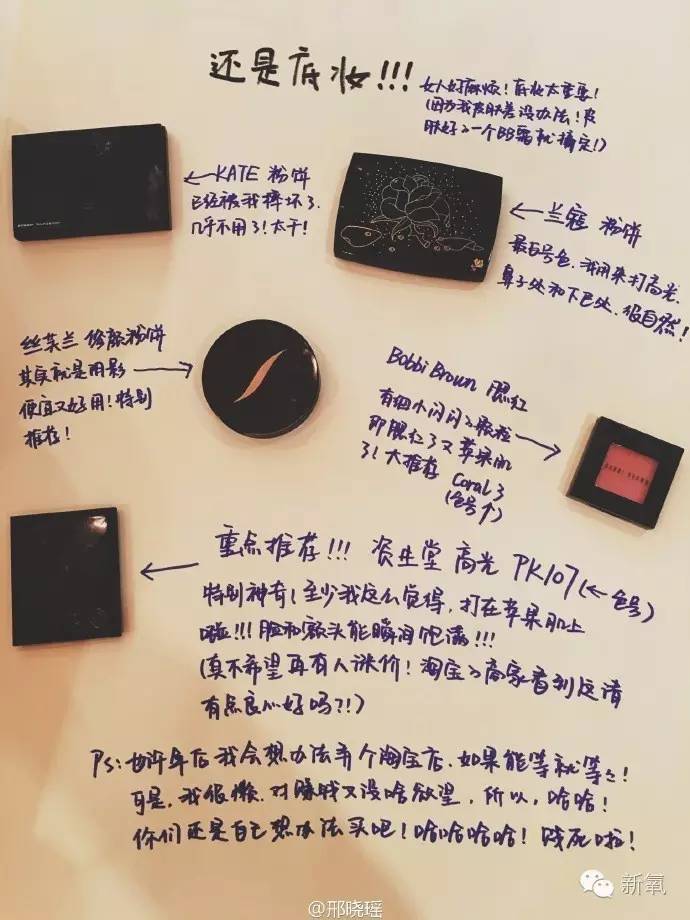 还是底妆!!!
女人好麻烦!底妆太重要!
(因为我皮肤差没办法!皮
肤好的一个BB霜就搞定!)
KATE 粉饼
已经被我摔坏了.
几乎不用了!太干!
兰寇 粉饼
最白号色.我用来打高光.
鼻子处和下巴处.很自然!
丝芙兰 修颜粉饼
其实就是阴影
便宜又好用!特别
推荐!
Bobbi Brown 腮红
有细小闪闪的颗粒
即腮红了又苹果肌
了!大推荐 Coral 3
(色号↑)
BOBBI BROWN
重点推荐!!! 资生堂 高光 PK107(←色号)
特别神奇!至少我这么觉得,打在苹果肌上
啦!!!脸和额头能瞬间饱满!!!
(真不希望再有人涨价!淘宝的商家看到这请
有点良心好吗?!)
Ps:也许年后我会想办法弄个淘宝店.如果能等就等等!
可是,我很懒.对赚钱又没啥欲望,所以,哈哈!
你们还是自己想办法买吧!哈哈哈哈!贱死啦!
新氧
@邢晓瑶